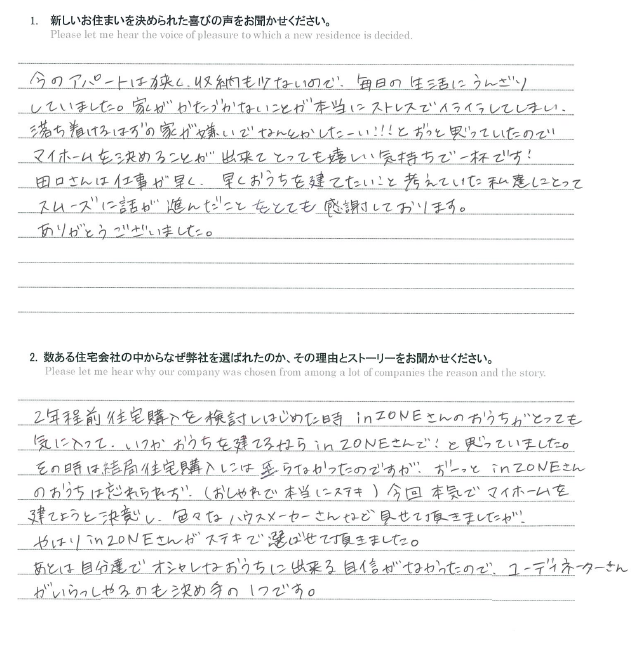 1. 新しいお住まいを決められた喜びの声をお聞かせください。
Please let me hear the voice of pleasure to which a new residence is decided.
今のアパートは狭く、収納も少ないので、毎日の生活にうんざり
していました。家がかたづかないことが本当にストレスでイライラしてしまい、
落ち着けるはずの家が嫌いでなんとかしたーい!!!とずっと思っていたので
マイホームを決めることが出来てとっても嬉しい気持ちで一杯です!
田口さんは仕事が早く、早くおうちを建てたいと考えていた私達にとって
スムーズに話が進んだことをとても感謝しております。
ありがとうございました。
2. 数ある住宅会社の中からなぜ弊社を選ばれたのか、その理由とストーリーをお聞かせください。
Please let me hear why our company was chosen from among a lot of companies the reason and the story.
2年程前住宅購入を検討しはじめた時inZONEさんのおうちがとっても
気に入って、いつかおうちを建てるならinZONEさんで!と思っていました。
その時は結局住宅購入には至らなかったのですが、ずーっとinZONEさん
のおうちは忘れられず、(おしゃれで本当にステキ)今回本気でマイホームを
建てようと決意し、色々なハウスメーカーさんなど見せて頂きましたが、
やはりinZONEさんがステキで選ばせて頂きました。
あとは自分達でオシャレなおうちに出来る自信がなかったので、コーディネーターさん
がいらっしゃるのも決め手の1つです。